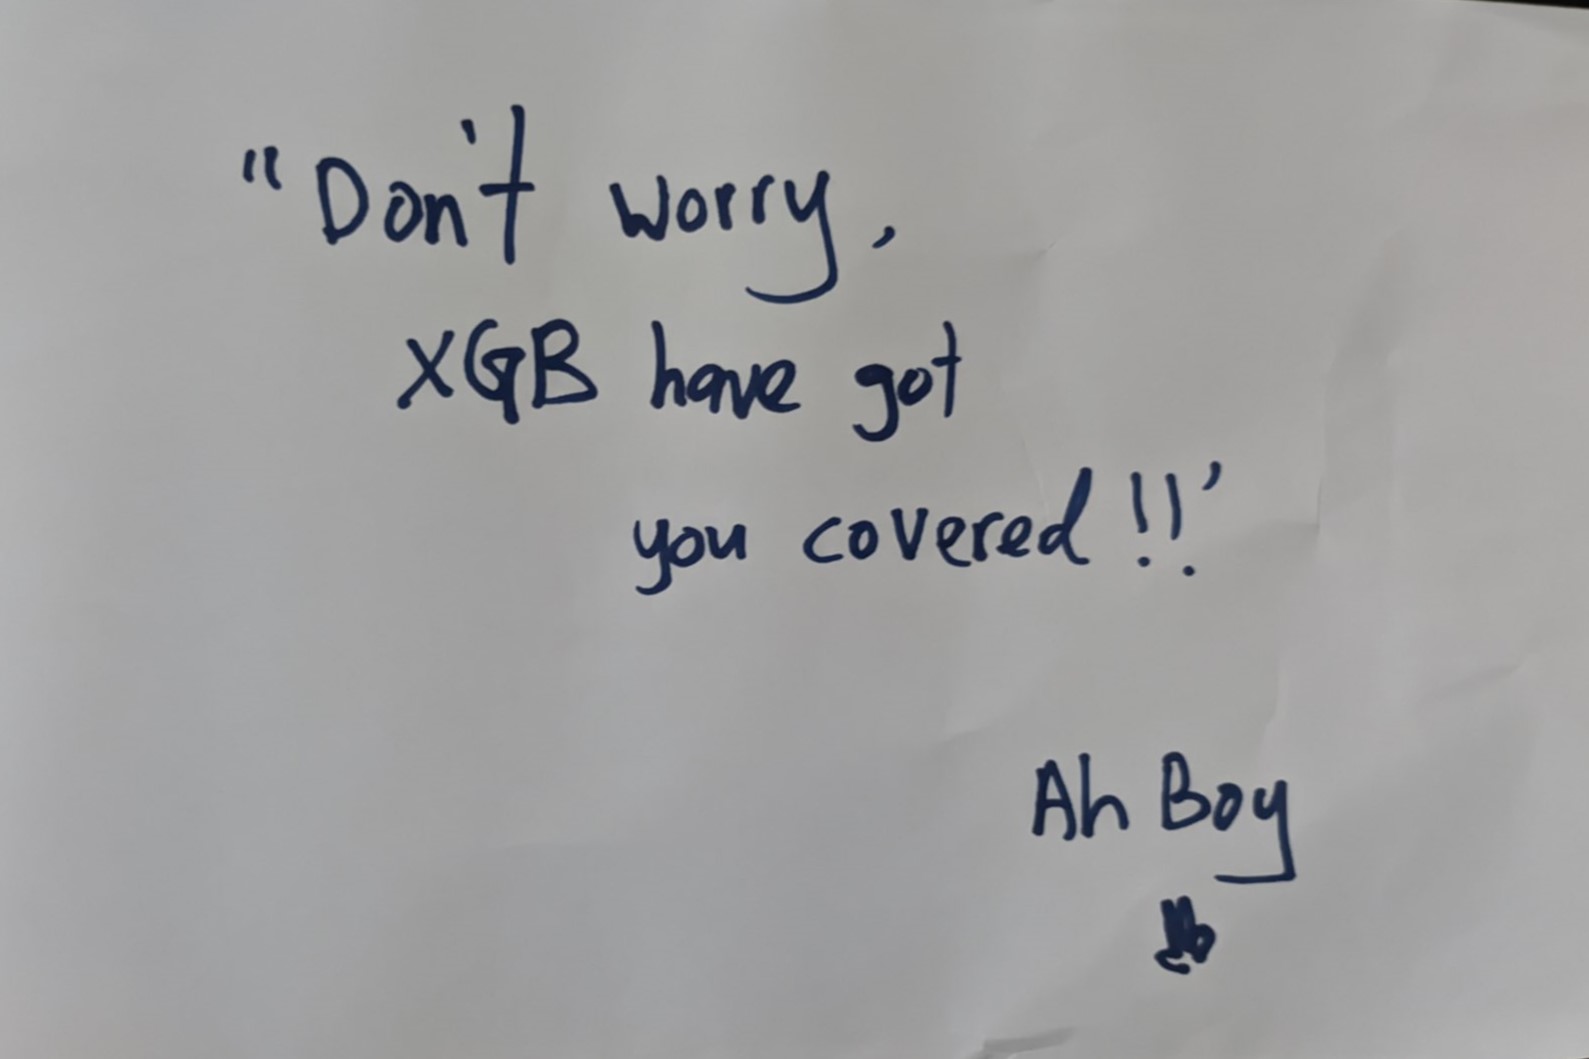 "Don't worry,
XGB have got
you covered!!'
Ah Boy